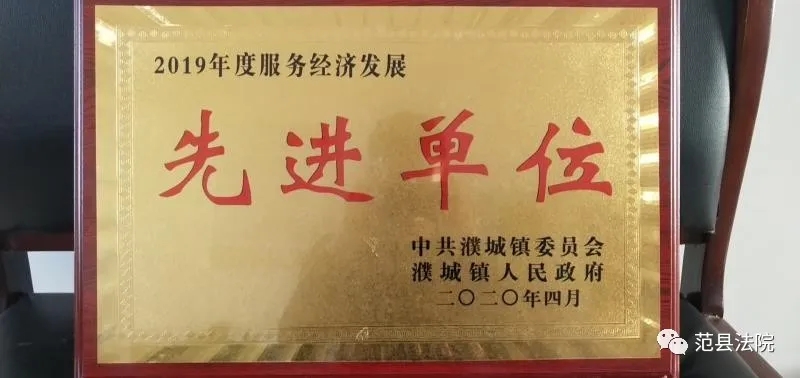 2019年度服务经济发展
先进单位
中共濮城镇委员会
濮城镇人民政府
二〇二〇年四月
范县法院